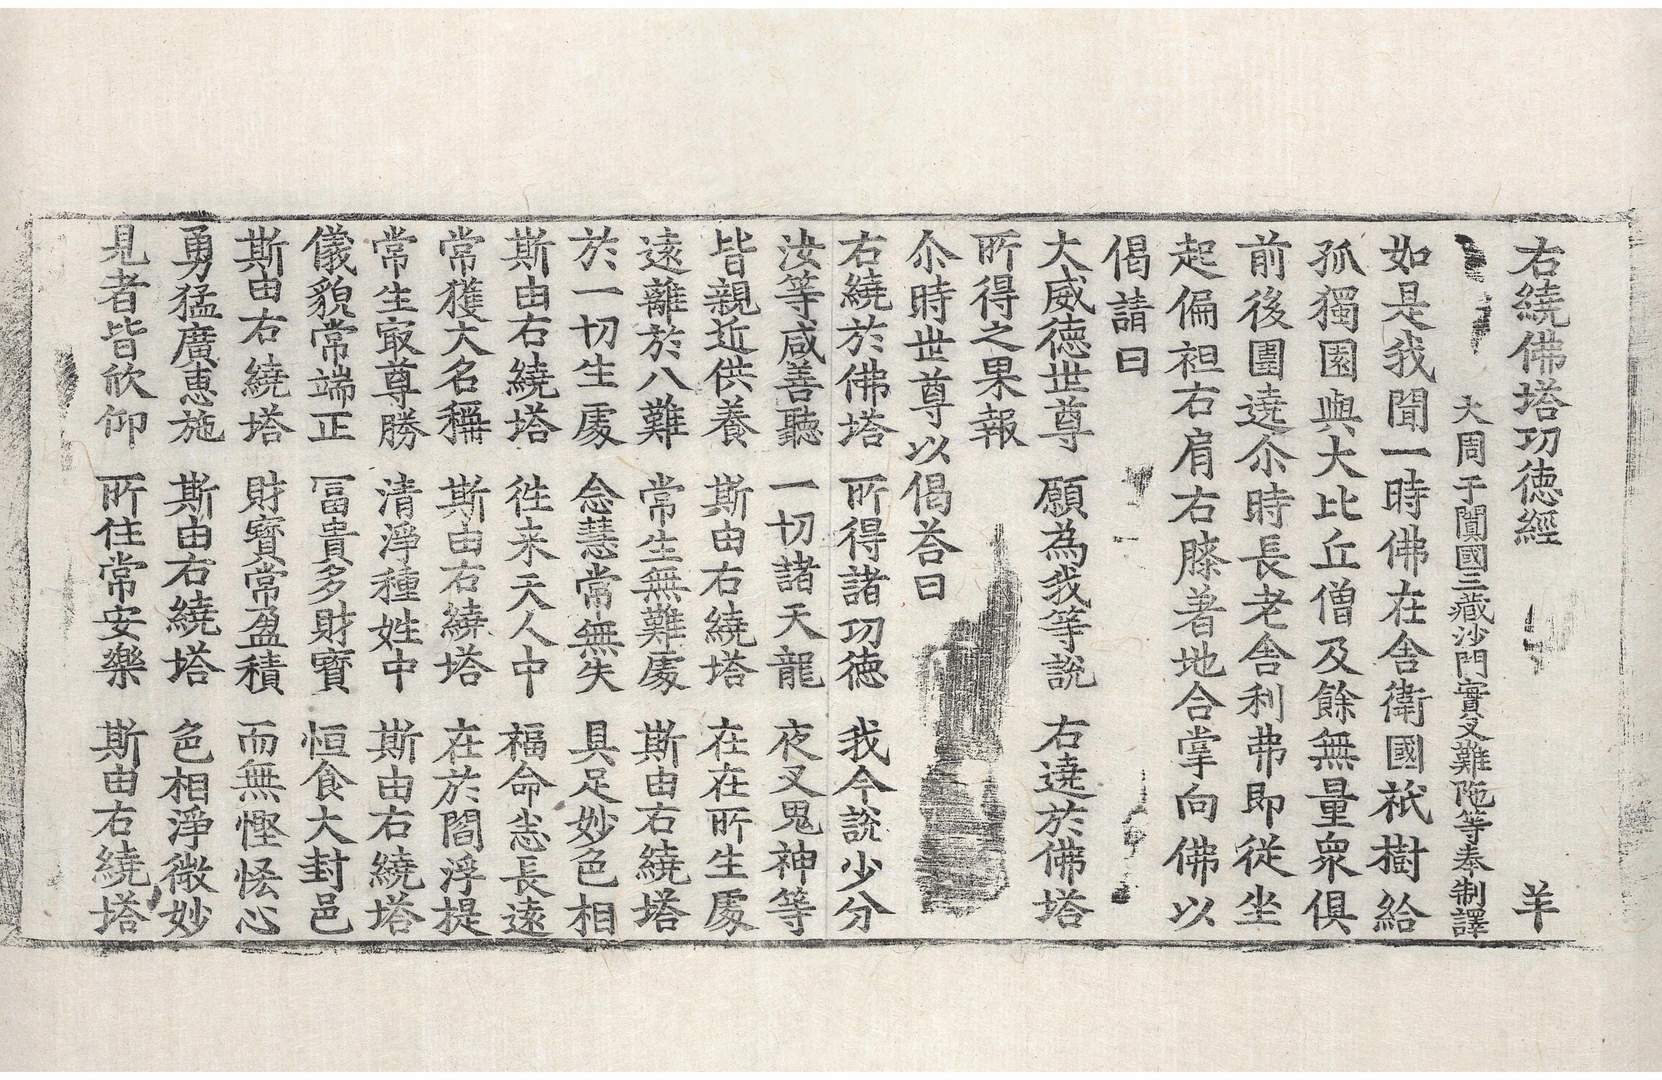 右繞佛塔功德經 羊
大周于闐國三藏沙門實叉難陁等奉制譯
如是我聞一時佛在舍衛國祇樹給
孤獨園與大比丘僧及餘無量衆俱
前後圍遶尒時長老舍利弗即從坐
起偏袒右肩右膝著地合掌向佛以
偈請曰
大威德世尊 願為我等說 右遶於佛塔
所得之果報
尒時世尊以偈荅曰
右繞於佛塔 所得諸功德 我今說少分
汝等咸善聽 一切諸天龍 夜叉鬼神等
皆親近供養 斯由右繞塔 在在所生處
遠離於八難 常生無難處 斯由右繞塔
於一切生處 念慧常無失 具足妙色相
斯由右繞塔 徃来天人中 福命悉長遠
常獲大名稱 斯由右繞塔 在於閻浮提
常生冣尊勝 清淨種姓中 斯由右繞塔
儀貌常端正 冨貴多財寶 恒食大封邑
斯由右繞塔 財寶常盈積 而無慳悋心
勇猛廣惠施 斯由右繞塔 色相淨微妙
見者皆欣仰 所住常安樂 斯由右繞塔